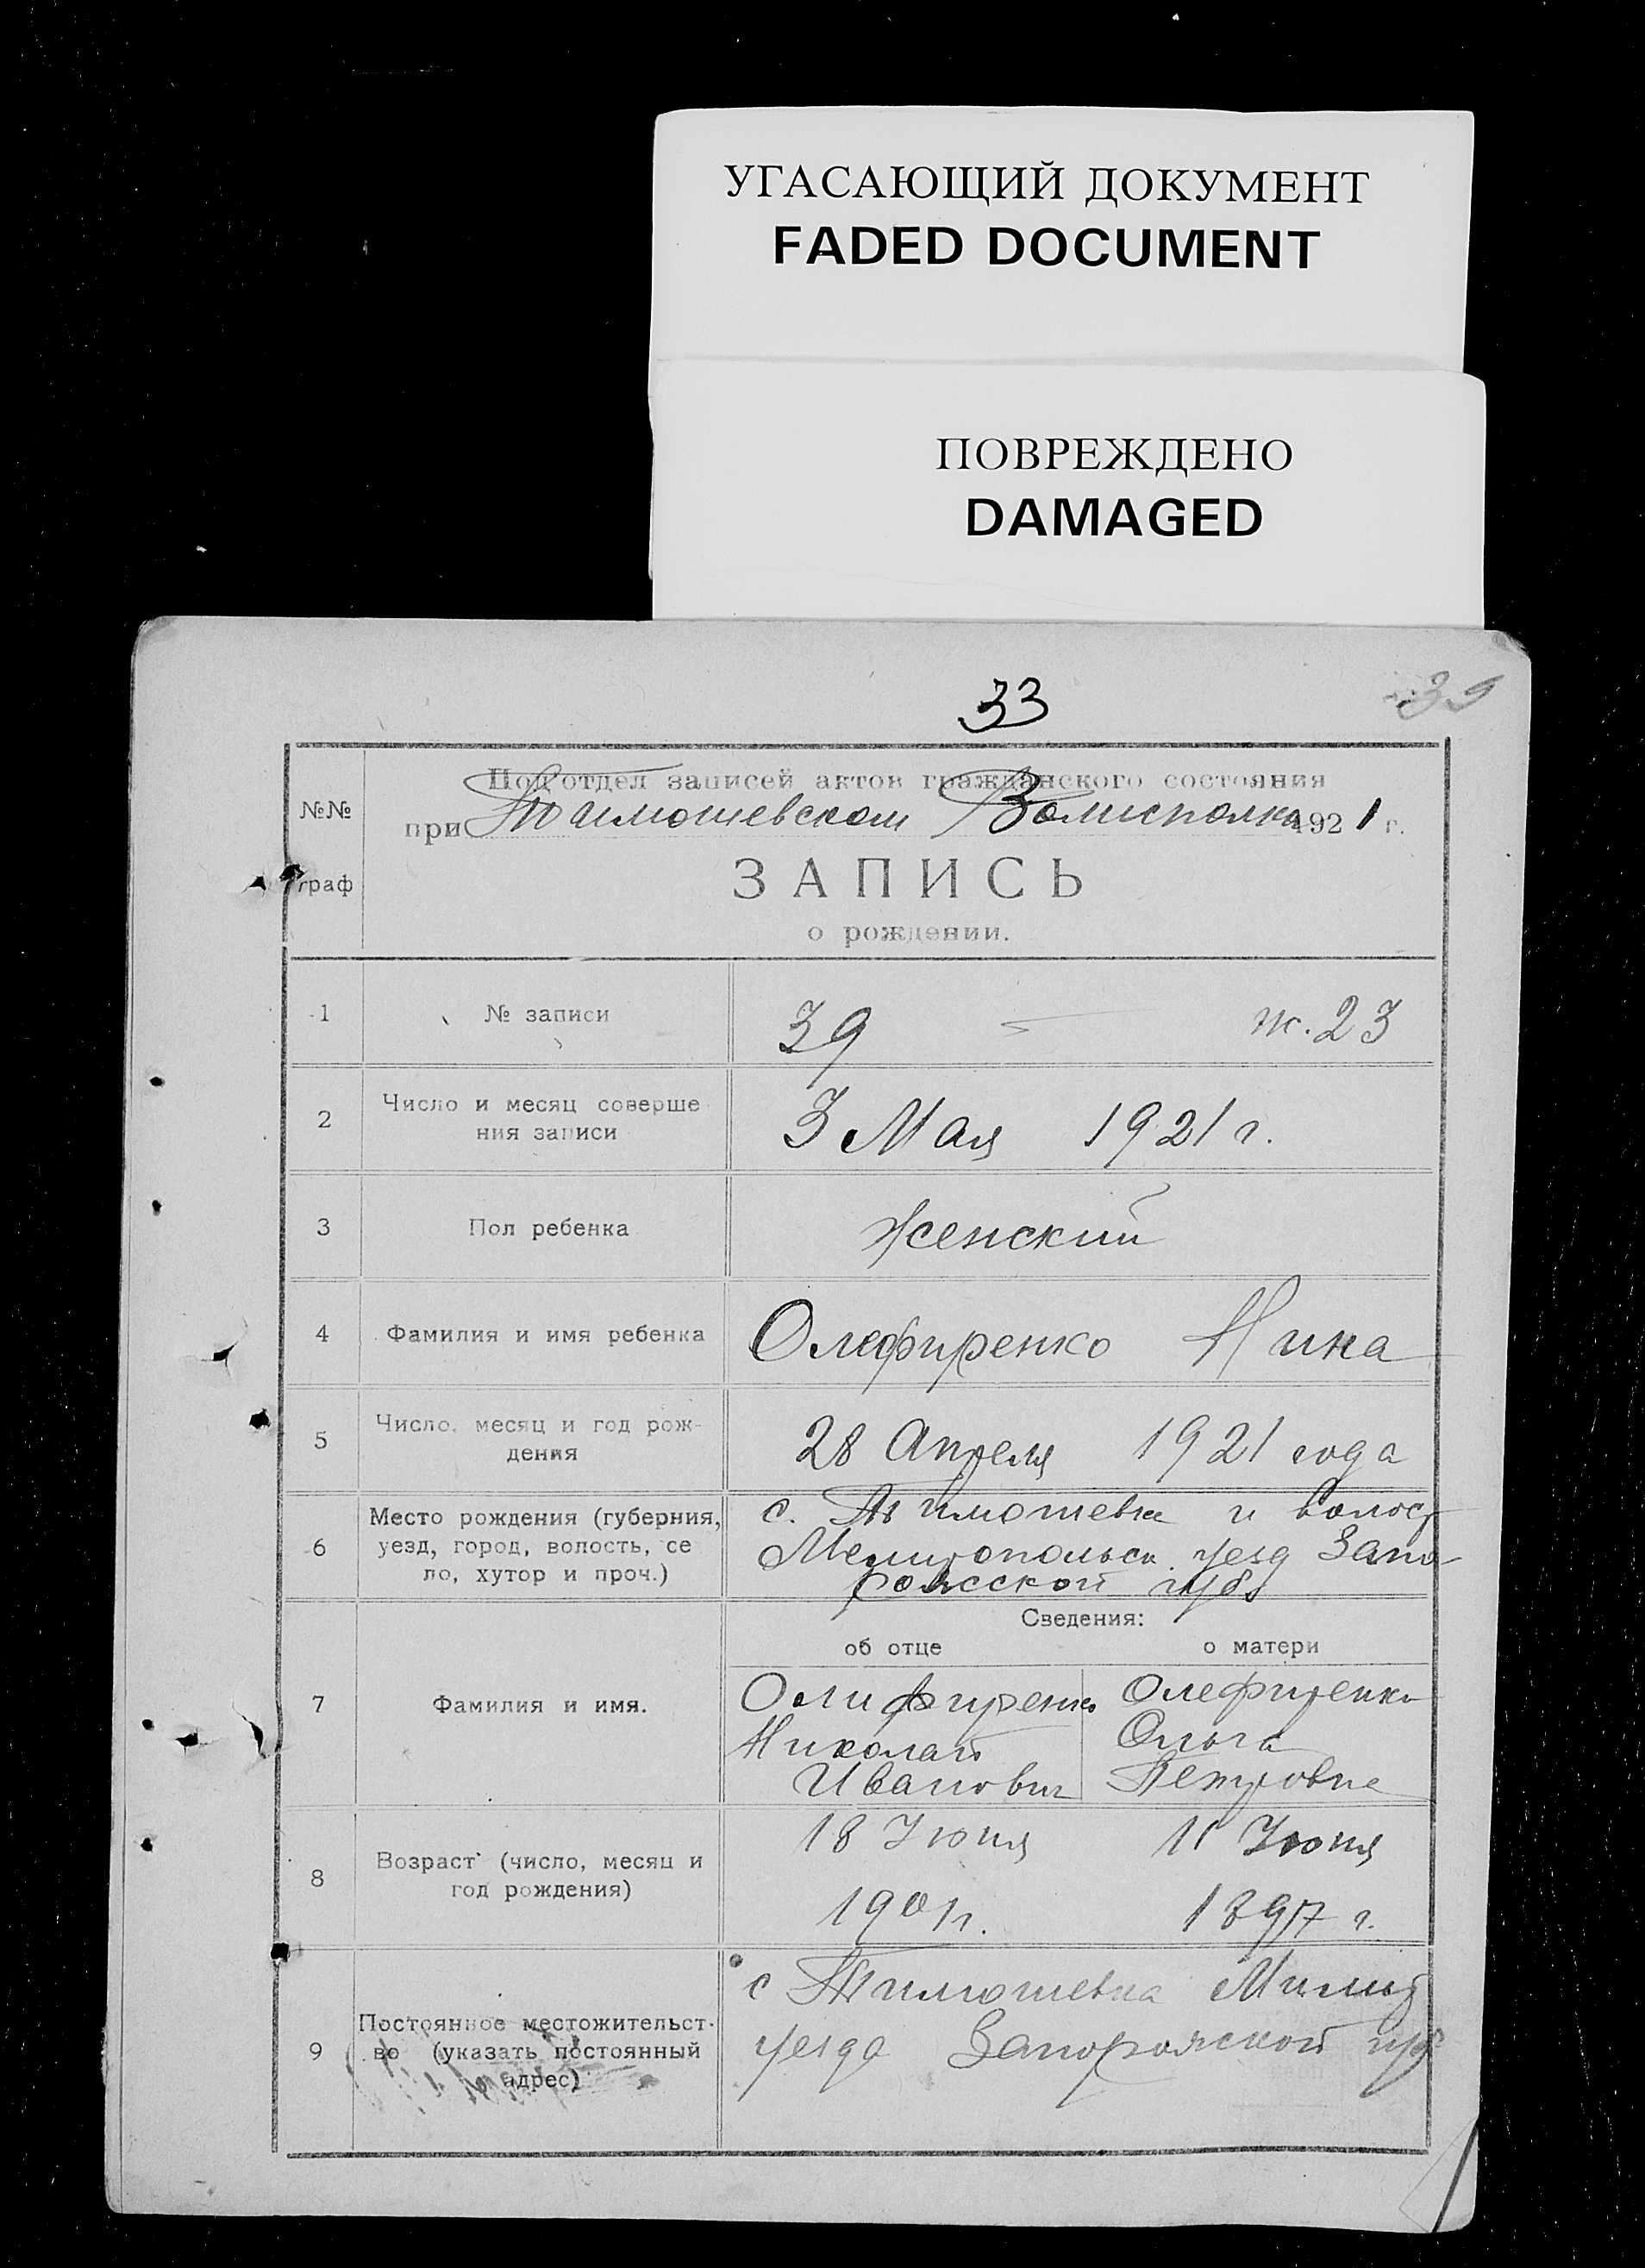 УГАСАЮЩИЙ ДОКУМЕНТ
FADED DOCUMENT
ПОВРЕЖДЕНО
DAMAGED
33
39
№№
граф
Под'отдел записей актов гражданского состояния
при Тимошевском Волисполко 1921 г.
ЗАПИСЬ
о рождении.
1 № записи 39 ж. 23
2 Число и месяц соверше
ния записи 3 Мая 1921 г.
3 Пол ребенка Женский
4 Фамилия и имя ребенка Олефиренко Нина
5 Число, месяц и год рож-
дения 28 Апреля 1921 года
6 Место рождения (губерния,
уезд, город, волость, се
ло, хутор и проч.)
с. Тимошевка и волост
Мелитопольск. уезд Запо-
рожской губ
Сведения:
об отце о матери
7 Фамилия и имя.
Олифиренко Олефиренко
Николай Ольга
Иванович Петровна
8 Возраст (число, месяц и
год рождения)
18 Июня 11 Июня
1901 г. 1897 г.
9 Постоянное местожительст-
во (указать постоянный
адрес)
с Тимошевка Милит
уезда Запорожской губ